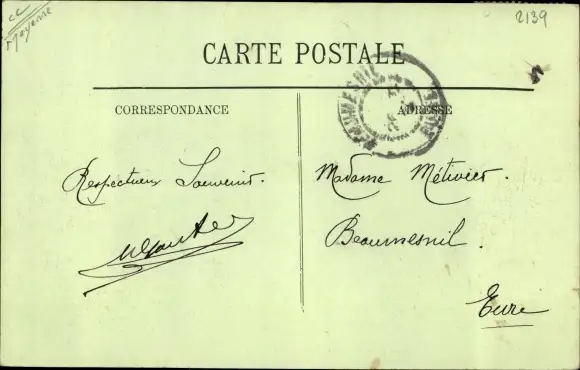 Mayenne
2139
CARTE POSTALE
CORRESPONDANCE
ADRESSE
BEAUMESNIL
Respectueux Souvenir.
Madame Métivier.
Beaumesnil.
Eure